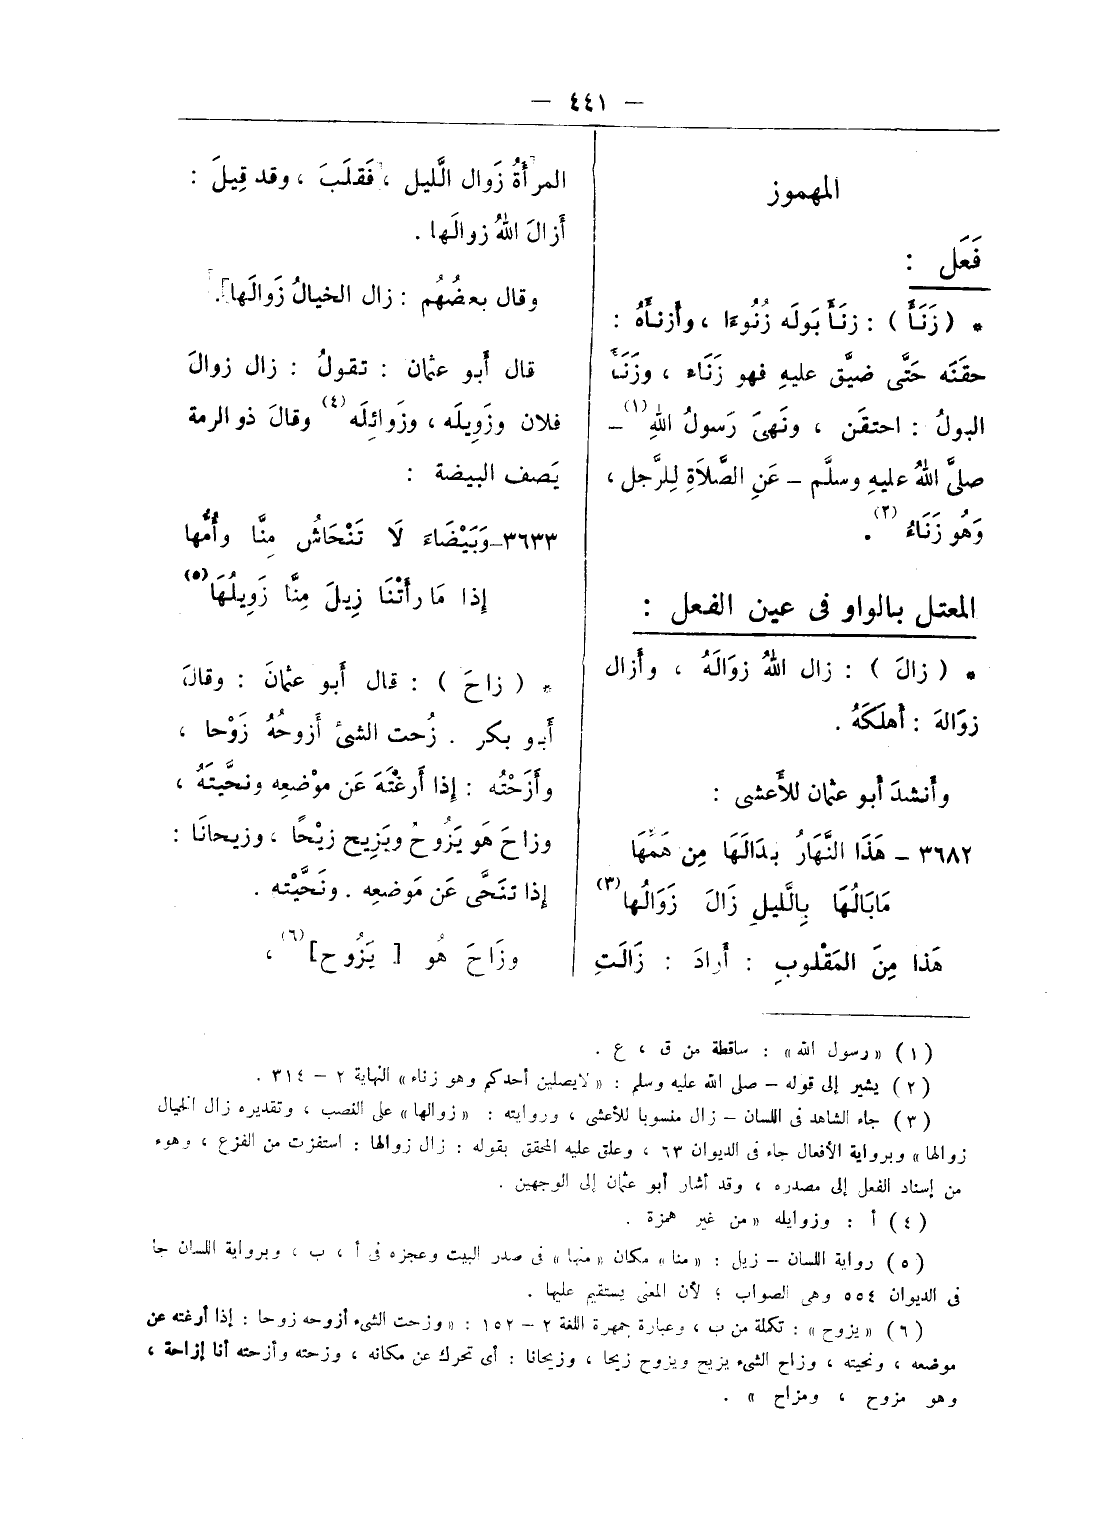 — ٤٤١ —
المهموز
فَعَل :
* ( زَنَأَ ) : زنَأَ بَولَه زُنُوءَا ، وأَزنأَهُ :
حقَنَه حَتَّى ضيَّق عليهِ فهو زَنَاء ، وزَنَأَ
البولُ : احتقَن ، ونَهىَ رَسولُ اللهِ (١) –
صلىَّ اللهُ عليهِ وسلَّم – عَنِ الصَّلاَةِ لِلرَّجل ،
وَهُو زَنَاءُ (٢) .
المعتل بالواو فى عين الفعل :
* ( زالَ ) : زال اللهُ زوَالَهُ ، وأَزال
زوَالهَ : أَهلَكَهُ .
وأَنشدَ أبو عثمان للأَعشى :
٣٦٨٢ – هَذَا النَّهَارُ بدَالَهَا مِن هَمِّهَا
مَابَالُهَا بِالَّليلِ زَالَ زَوَالُها (٣)
هَذا مِنَ المَقْلوبِ : أَرادَ : زَالَتِ
المرأَةُ زَوال الَّليل ، فَقلَبَ ، وقد قِيلَ :
أَزالَ اللهُ زوالَها .
وقال بعضُهُم : زال الخيالُ زَوالَها] .
قال أَبو عثمان : تقولُ : زال زوالَ
فلان وزَويلَه ، وزَوائِلَه (٤) وقالَ ذو الرمة
يَصف البيضة :
٣٦٣٣–وَبَيْضَاءَ لَا تَنْحَاشُ مِنَّا وأُمُّها
إِذا مَا رأَتْنَا زِيلَ مِنَّا زَوِيلُهَا (٥)
* ( زاحَ ) : قال أَبو عثمانَ : وقالَ
أَبو بكر . زُحت الشئَ أَزوحُهُ زَوْحا ،
وأَزَحْتُه : إِذا أَرغْتَهَ عَن موْضعِه ونحَّيتَهُ ،
وزاحَ هَو يَزُوحُ ويَزِيح زيْحًا ، وزيحانَا :
إذا تنَحَّى عَن مَوضعِه . ونَحَّيْته .
وزَاحَ هُو [ يَزُوح] (٦) ،
(١) « رسول الله » : ساقطة من ق ، ع .
(٢) يشير إلى قوله – صلى الله عليه وسلم : « لايصلين أحدكم وهو زناء » النهاية ٢ – ٣١٤ .
(٣) جاء الشاهد فى اللسان – زال منسوبا للأعشى ، وروايته : « زوالها » على النصب ، وتقديره زال الخيال
زوالها » وبرواية الأفعال جاء فى الديوان ٦٣ ، وعلق عليه المحقق بقوله : زال زوالها : استفزت من الفزع ، وهوء
من إسناد الفعل إلى مصدره ، وقد أشار أبو عثمان إلى الوجهين .
(٤) أ : وزوايله « من غير همزة .
(٥) رواية اللسان – زيل : « منا » مكان « منها » فى صدر البيت وعجزه فى أ ، ب ، وبرواية اللسان جا
فى الديوان ٥٥٤ وهى الصواب ؛ لأن المعنى يستقيم عليها .
(٦) « يزوح » : تكملة من ب ، وعبارة جمهرة اللغة ٢ – ١٥٢ : « وزحت الشىء أزوحه زوحا : إذا أرغته عن
موضعه ، ونحيته ، وزاح الشىء يزيح ويزوح زيحا ، وزيحانا : أى تحرك عن مكانه ، وزحته وأزحته أنا إزاحة ،
وهو مزوح ، ومزاح » .